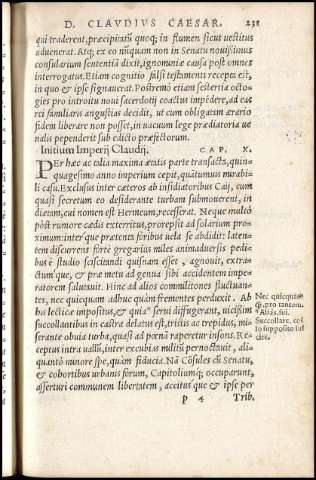 D. CLAVDIVS CAESAR. 231
qui traderent, præcipitatũ quoq; in flumen sicut vectitius
aduenerat. Atq; ex eo nũquam non in Senatu nouissimus
consularium sententiã dixit, ignominiæ causa post omnes
interrogatus. Etiam cognitio falsi testamenti recepta est,
in quo & ipse signauerat. Postremò etiam sestertiũ octo-
gies pro introitu noui sacerdotij coactus impẽdere, ad eas
rei familiaris angustias decidit, ut cum obligatam ærario
fidem liberare non posset, in uacuum lege prædiatoria ue
nalis pependerit sub edicto præfectorum.
Initium Imperij Claudij. CAP. X.
PEr hæc ac talia maxima ætatis parte transacta, quin-
quagesimo anno imperium cepit, quãtumuis mirabi-
li casu. Exclusus inter cæteros ab insidiatoribus Caij, cum
quasi secretum eo desiderante turbam submouerent, in
diætam, cui nomen est Hermeum, recesserat. Neque multò
pòst rumore cædis exterritus, prorepsit ad solarium pro-
ximum: interq́ue prætenta foribus uela se abdidit: laten-
tem discurrens fortè gregarius miles animaduersis pedi-
bus è studio sciscitandi quisnam esset, agnouit, extra-
ctumq́ue, & præ metu ad genua sibi accidentem impe-
ratorem salutauit. Hinc ad alios commilitones fluctuan-
tes, nec quicquam adhuc quàm frementes perduxit. Ab
his lectica impositus, & quia serui diffugerant, uicissim
succollantibus in castra delatus est, tristis ac trepidus, mi-
serante obuia turba, quasi ad pœnã raperetur insons. Re-
ceptus intra uallũ, inter excubias militũ pernoctauit, ali-
quantò minore spe, quàm fiducia. Nã Cõsules cũ Senatu,
& cohortibus urbanis forum, Capitoliumq́; occupauerunt,
asserturi communem libertatem, accitusq́ue & ipse per
p 4 Trib.
Nec quicquam
pro tantum.
Aliàs, sui.
Succollare, col
lo supposito